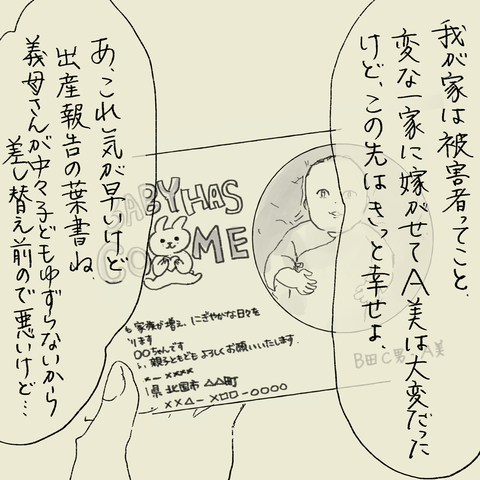 我が家は被害者ってこと。
変な一家に嫁がせてA美は大変だった
けど、この先はきっと幸せよ。
あ、これ気が早いけど
出産報告の葉書ね。
義母さんが中々子どもゆずらないから
差し替え前ので悪いけど…
BABY HAS
COME
家族が増え、にぎやかな日々を
ります
〇〇ちゃんです
親子ともども よろしくお願いいたします.
B田C男・A美
県 北国市 △△町
××△-×□□-○○○○